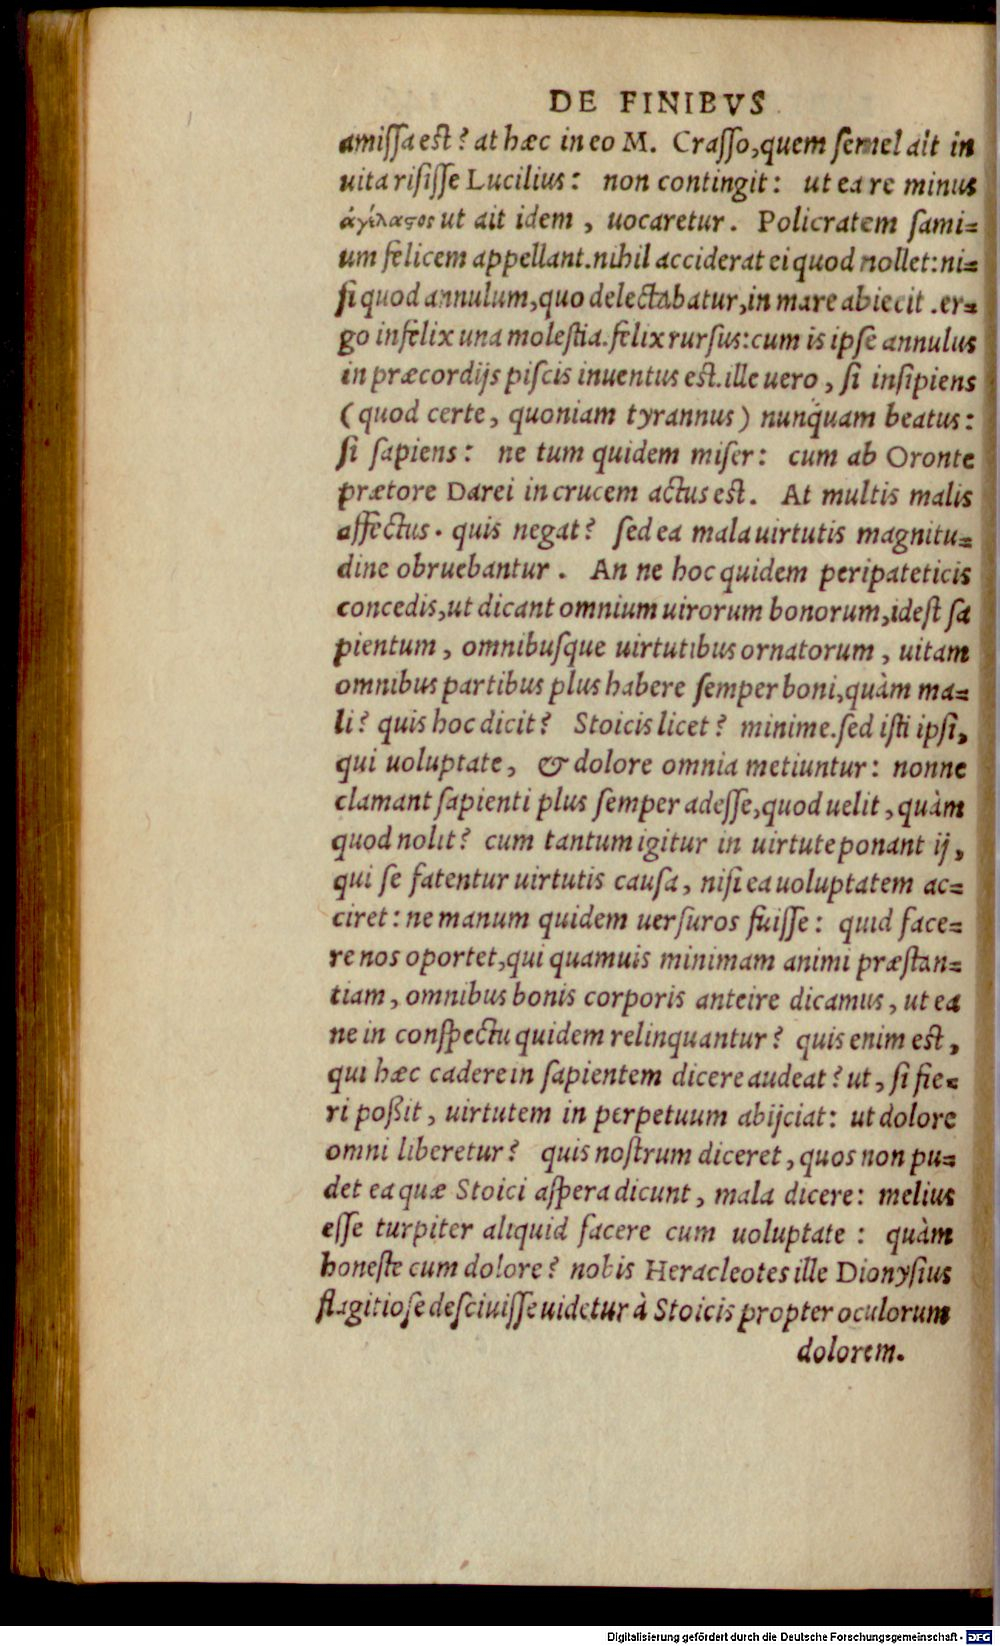 DE FINIBVS
amiſſa est? at hæc in eo M. Craſſo, quem ſemel ait in
uita riſiſſe Lucilius: non contingit: ut ea re minus
ἀγέλαςος ut ait idem, uocaretur. Policratem ſami=
um felicem appellant. nihil acciderat ei quod nollet: ni=
ſi quod annulum, quo delectabatur, in mare abiecit. er=
go infelix una moleſtia. felix rurſus: cum is ipſe annulus
in præcordijs piſcis inuentus est. ille uero, ſi inſipiens
(quod certe, quoniam tyrannus) nunquam beatus:
ſi ſapiens: ne tum quidem miſer: cum ab Oronte
prætore Darei in crucem actus est. At multis malis
affectus. quis negat? ſed ea mala uirtutis magnitu=
dine obruebantur. An ne hoc quidem peripateticis
concedis, ut dicant omnium uirorum bonorum, ideſt ſa
pientum, omnibuſque uirtutibus ornatorum, uitam
omnibus partibus plus habere ſemper boni, quàm ma=
li? quis hoc dicit? Stoicis licet? minime. ſed iſti ipſi,
qui uoluptate, & dolore omnia metiuntur: nonne
clamant ſapienti plus ſemper adeſſe, quod uelit, quàm
quod nolit? cum tantum igitur in uirtute ponant ij,
qui ſe fatentur uirtutis cauſa, niſi ea uoluptatem ac=
ciret: ne manum quidem uerſuros fuiſſe: quid face=
re nos oportet, qui quamuis minimam animi præſtan=
tiam, omnibus bonis corporis anteire dicamus, ut ea
ne in conſpectu quidem relinquantur? quis enim est,
qui hæc cadere in ſapientem dicere audeat? ut, ſi fie=
ri poßit, uirtutem in perpetuum abijciat: ut dolore
omni liberetur? quis noſtrum diceret, quos non pu=
det ea quæ Stoici aſpera dicunt, mala dicere: melius
eſſe turpiter aliquid facere cum uoluptate: quàm
honeſte cum dolore? nobis Heracleotes ille Dionyſius
flagitioſe deſciuiſſe uidetur à Stoicis propter oculorum
dolorem.
Digitalisierung gefördert durch die Deutsche Forschungsgemeinschaft - DFG